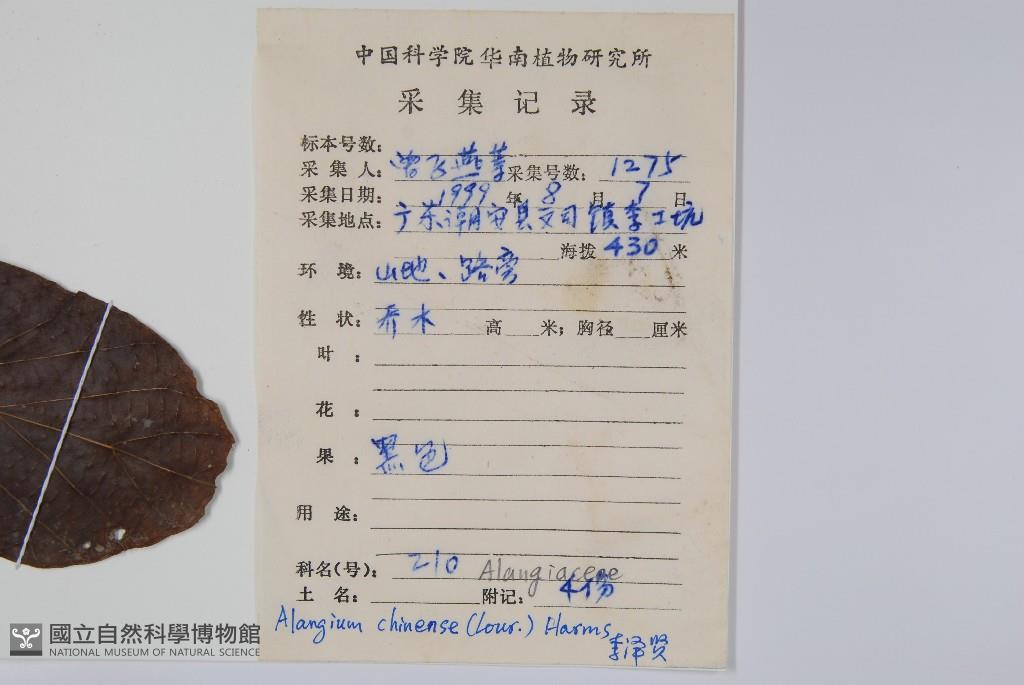 中国科学院华南植物研究所
采 集 记 录
标本号数:
采 集 人: 曾飞燕等 采集号数: 1275
采集日期: 1999 年 8 月 7 日
采集地点: 广东潮安县文祠镇李工坑
海拨 430 米
环 境: 山地、路旁
性 状: 乔木 高 米; 胸径 厘米
叶 :
花 :
果 : 黑色
用 途:
科名(号): 210 Alangiaceae
土 名: 附记: 4份
Alangium chinense (Lour.) Harms
李泽贤
國立自然科學博物館
NATIONAL MUSEUM OF NATURAL SCIENCE